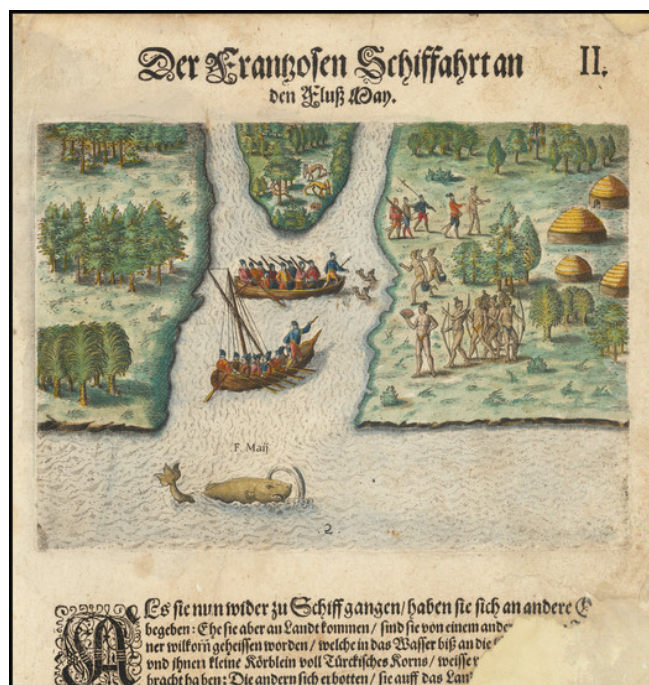 Der Frantzosen Schiffahrt an
II.
den Fluß May.
F. Maij
2
Als sie nun wider zu Schiff gangen/ haben sie sich an andere
begeben: Ehe sie aber an Landt kommen/ sind sie von einem
ner wilkom̃ geheissen worden/ welche in das Wasser biß an die
vnd ihnen kleine Körblein voll Türckisches Korns/ weisse
bracht haben: Die andern sich erbotten/ sie auff das